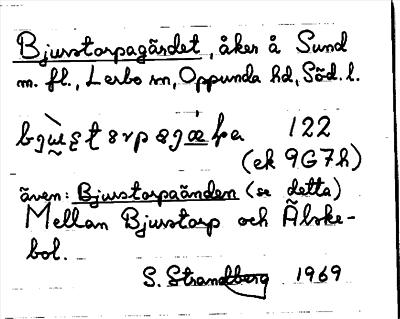 Bjurstorpagärdet, åker å Sund
m. fl., Lerbo sn, Oppunda hd, Söd. l.
122
(ek 9G7h)
även: Bjurstorpaänden (se detta)
Mellan Bjurstorp och Älske-
bol.
S. Strandberg 1969